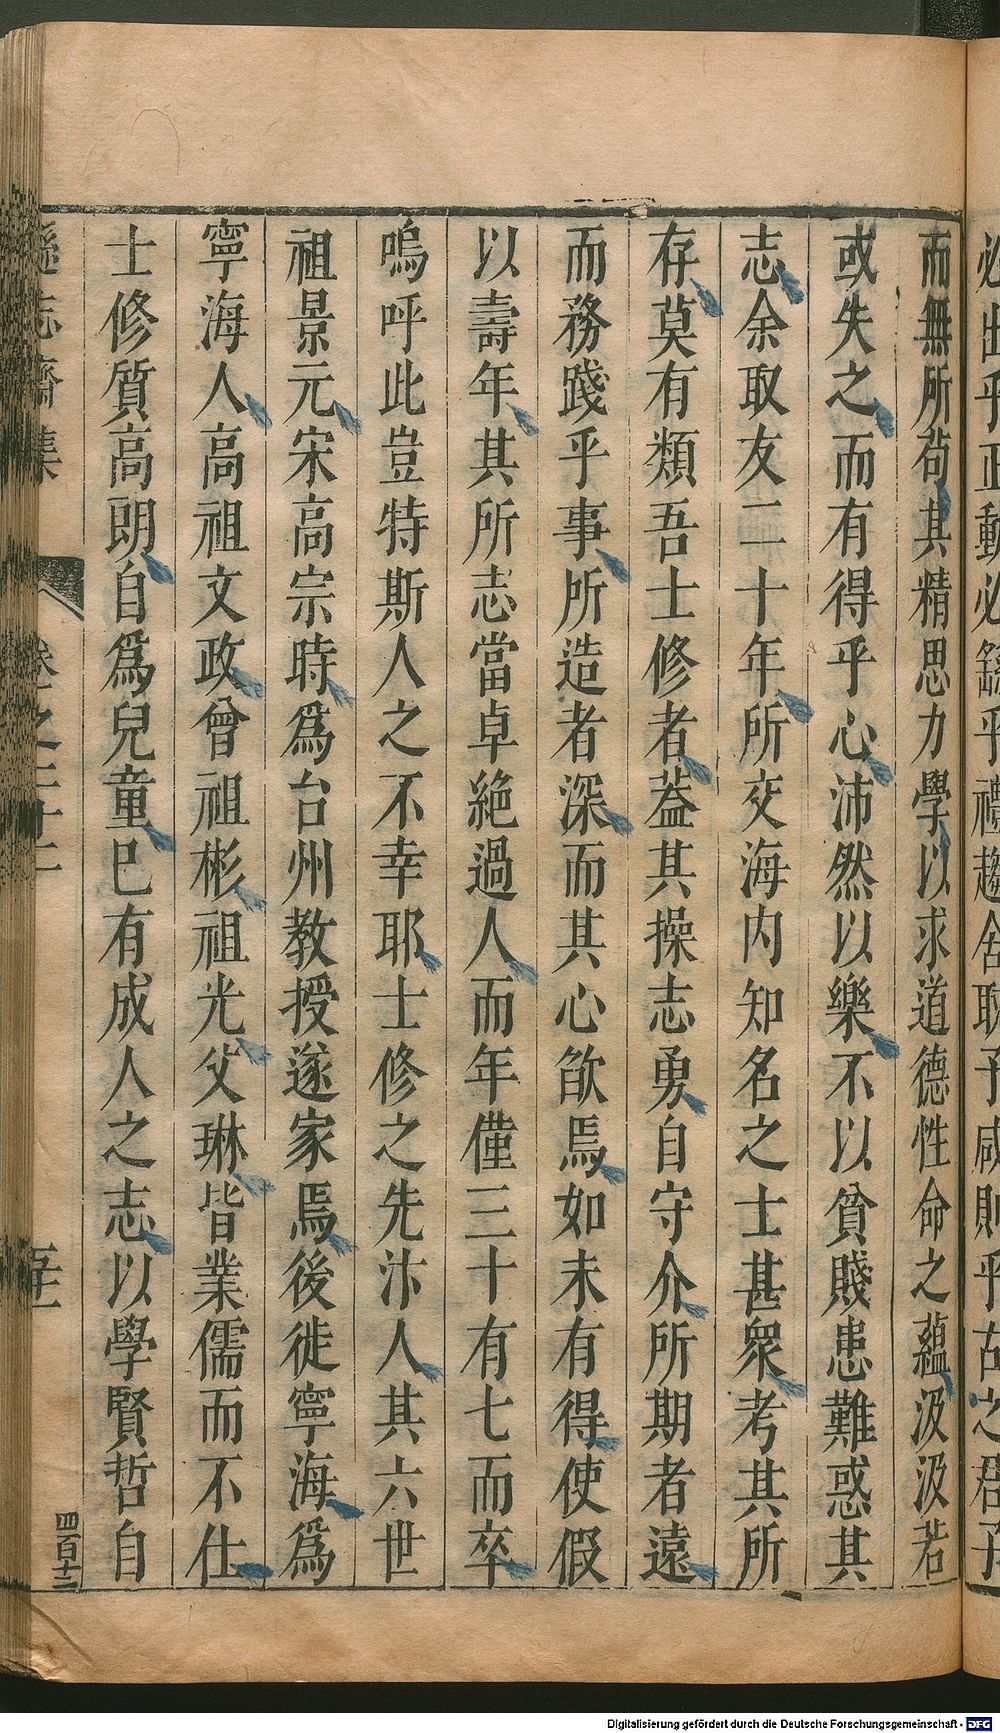 必出乎正動必繇乎禮趨舍取予咸則乎古之君子
而無所苟其精思力學以求道德性命之蘊汲汲若
或失之而有得乎心沛然以樂不以貧賤患難惑其
志余取友二十年所交海内知名之士甚衆考其所
存莫有類吾士修者葢其操志勇自守介所期者遠
而務踐乎事所造者深而其心欿焉如未有得使假
以壽年其所志當卓絶過人而年僅三十有七而卒
嗚呼此豈特斯人之不幸耶士修之先汴人其六世
祖景元宋高宗時爲台州教授遂家焉後徙寧海爲
寧海人高祖文政曾祖彬祖光父琳皆業儒而不仕
士修質高朗自爲兒童巳有成人之志以學賢哲自
遜志齋集
卷之二十二
五十一
四百十二
Digitalisierung gefördert durch die Deutsche Forschungsgemeinschaft - DFG